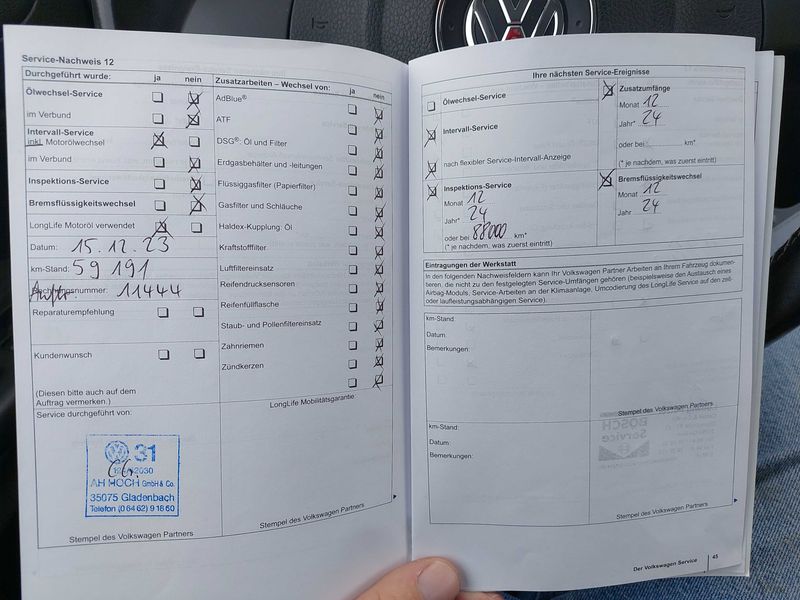 Service-Nachweis 12
Durchgeführt wurde: ja nein
Ölwechsel-Service
im Verbund
Intervall-Service
inkl. Motorölwechsel
im Verbund
Inspektions-Service
Bremsflüssigkeitswechsel
LongLife Motoröl verwendet
Datum: 15.12.23
km-Stand: 59 191
Auftr. nummer: 11444
Reparaturempfehlung
Kundenwunsch
(Diesen bitte auch auf dem
Auftrag vermerken.)
Service durchgeführt von:
31
AH HOCH GmbH & Co.
35075 Gladenbach
Telefon (0 64 62) 9 18 60
Stempel des Volkswagen Partners
Zusatzarbeiten – Wechsel von: ja nein
AdBlue®
ATF
DSG®: Öl und Filter
Erdgasbehälter und -leitungen
Flüssiggasfilter (Papierfilter)
Gasfilter und Schläuche
Haldex-Kupplung: Öl
Kraftstofffilter
Luftfiltereinsatz
Reifendrucksensoren
Reifenfüllflasche
Staub- und Pollenfiltereinsatz
Zahnriemen
Zündkerzen
LongLife Mobilitätsgarantie
Stempel des Volkswagen Partners
Ihre nächsten Service-Ereignisse
Ölwechsel-Service
Intervall-Service
nach flexibler Service-Intervall-Anzeige
Inspektions-Service
Monat 12
Jahr* 24
oder bei 88000 km*
(* je nachdem, was zuerst eintritt)
Zusatzumfänge
Monat 12
Jahr* 24
oder bei km*
(* je nachdem, was zuerst eintritt)
Bremsflüssigkeitswechsel
Monat 12
Jahr 24
Eintragungen der Werkstatt
In den folgenden Nachweisfeldern kann Ihr Volkswagen Partner Arbeiten an Ihrem Fahrzeug dokumen-
tieren, die nicht zu den festgelegten Service-Umfängen gehören (beispielsweise den Austausch eines
Airbag-Moduls, Service-Arbeiten an der Klimaanlage, Umcodierung des LongLife Service auf den zeit-
oder laufleistungsabhängigen Service).
km-Stand:
Datum:
Bemerkungen:
Stempel des Volkswagen Partners
km-Stand:
Datum:
Bemerkungen:
Stempel des Volkswagen Partners
Der Volkswagen Service 45